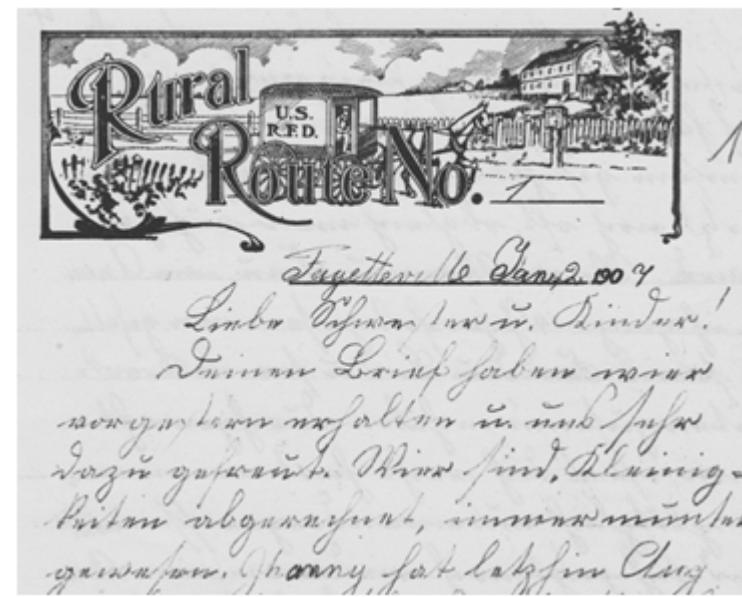 Rural
U.S.
R.F.D.
Route No. 1
1
Fayetteville Jany 2. 1907
Liebe Schwester u. Kinder!
Deinen Brief haben wier
vorgestern erhalten u. uns sehr
dazu gefreut. Wier sind, Kleinig-
keiten abgerechnet, immer munter
gewesen. hat letzhin Aug